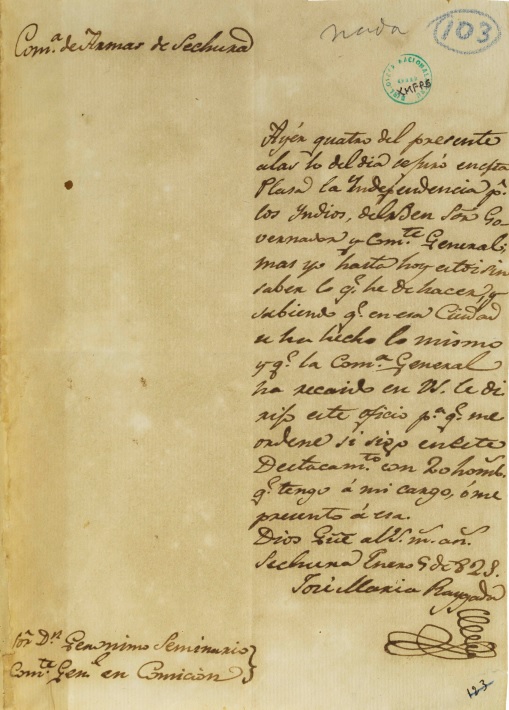 nada
103
Com.ª de Armas de Sechura
BIBLIOTECA NACIONAL
XMFPB
Ayér quatro del presente
alas 10 del dia se juró en esta
Plasa la Independencia p.r
los Yndios, del Ben Sõr Go-
vernador y Com.te General;
mas yo hasta hoy estoi sin
saber lo q.e he de hacer, y
sabiendo q.e en esa Ciudad
se ha hecho lo mismo
y q.e la Com.ª General
ha recaido en V. le di
rijo este oficio p.ª q.e me
ordene si sigo en este
Destacam.to con 20 homb.s
q.e tengo á mi cargo, ó me
presento á esa.
Dios Gũe al V. m.s añ.s
Sechura Enero 5 de 821.
José Maria Raygada
Sõr D.n Geronimo Seminario
Com.te Gen.l en Comición
123